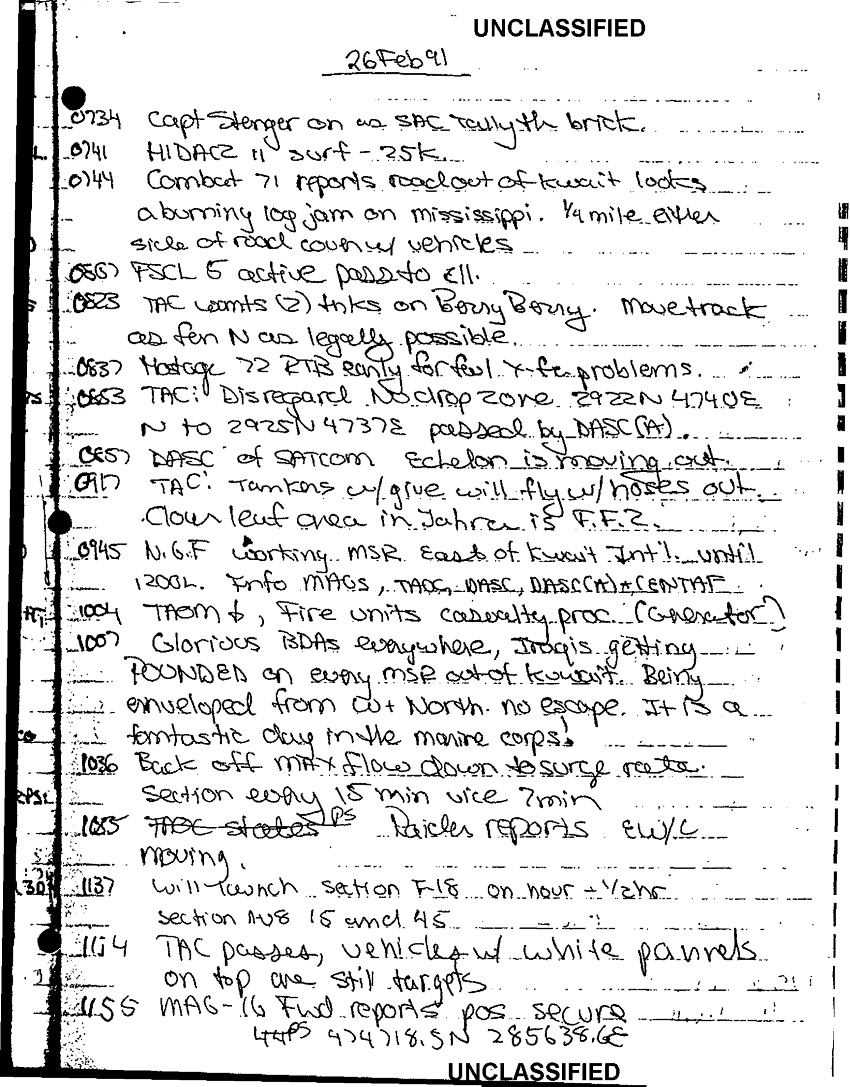 UNCLASSIFIED
26Feb91
0734 Capt Stenger on as SAC Tally th brick.
0741 HIDACZ 11 surf - 25K
0744 Combat 71 reports road out of Kuwait looks
a burning log jam on mississippi. 1/4 mile either
side of road cover w/ vehicles
FSCL 5 active pass to all.
0823 TAC wants (2) tnks on Berry Berry. Move track
as far N as legally possible.
0837 Hostage 72 RTB early for fuel X-fer problems.
0853 TAC: Disregard No drop zone 2922N 4740E
N to 2925N 4737E passed by DASC(A).
0857 DASC of SATCOM Echelon is moving out.
0917 TAC: Tankers w/ give will fly w/ hoses out.
Clour leaf area in Jahra is F.F.Z.
0945 N.G.F working MSR East of Kuwait Int'l. until
1200L. Info MAGs, TAOC, DASC, DASC(A) + CENTAF
1004 TAOM ↓, Fire units casualty proc. (Generator?)
1007 Glorious BDAs everywhere, Iraqis getting
POUNDED on every MSR out of Kuwait. Being
enveloped from W + North. no escape. It is a
fantastic day in the marine corps!
1036 Back off MAX flow down to surge rate.
Section every 15 min vice 7min
1055 TAOC states PS Raider reports EW/C
moving.
1137 will launch section F-18 on hour + 1/2 hr
section AV8 15 and 45
1154 TAC passes, vehicles w/ white pannels
on top are still targets
1155 MAG-16 Fwd reports pos secure
PS 474718.5N 285638.6E
UNCLASSIFIED